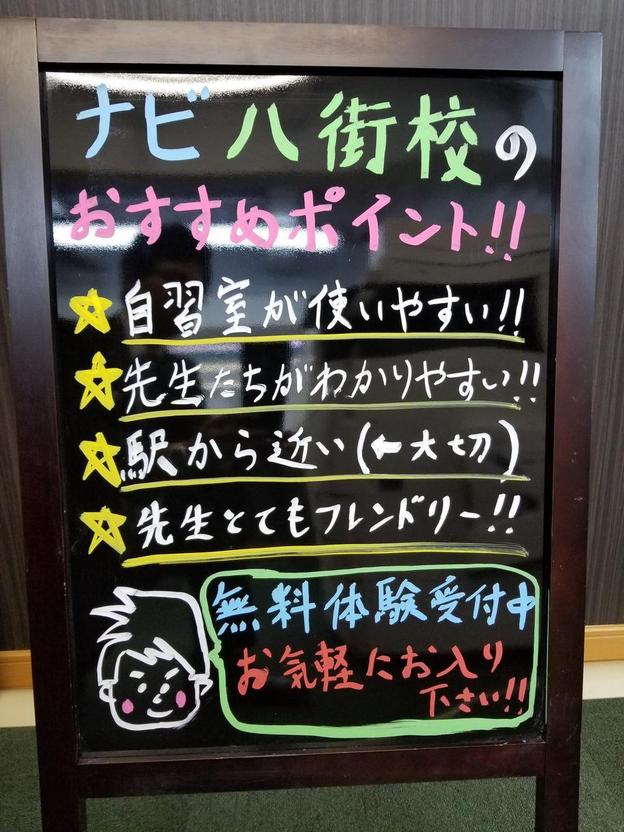 ナビ八街校の
おすすめポイント!!
☆自習室が使いやすい!!
☆先生たちがわかりやすい!!
☆駅から近い(←大切)
☆先生とてもフレンドリー!!
無料体験受付中
お気軽にお入り
下さい!!